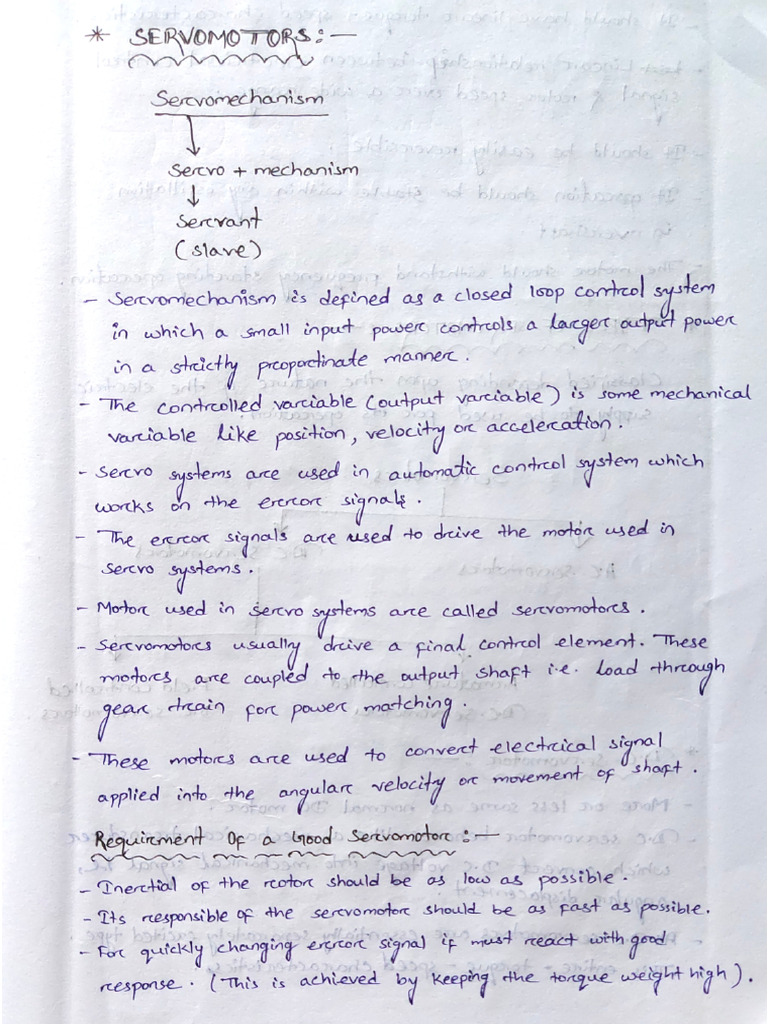 * SERVOMOTORS:-
Servomechanism
Servo + mechanism
Servant
(slave)
- Servomechanism is defined as a closed loop control system
in which a small input power controls a larger output power
in a strictly proportinate manner.
- The controlled variable (output variable) is some mechanical
variable like position, velocity or acceleration.
- Servo systems are used in automatic control system which
works on the error signals.
- The error signals are used to drive the motor used in
servo systems.
- Motor used in servo systems are called servomotors.
- Servomotors usually drive a final control element. These
motors are coupled to the output shaft i.e. load through
gear train for power matching.
- These motors are used to convert electrical signal
applied into the angular velocity or movement of shaft.
Requirment Of a Good Servomotor:-
- Inertial of the rotor should be as low as possible.
- Its responsible of the servomotor should be as fast as possible.
- For quickly changing error signal if must react with good
response. (This is achieved by keeping the torque weight high).